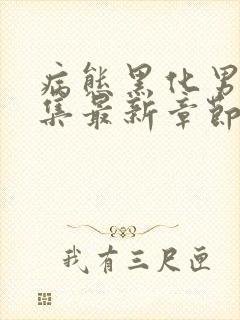 病态黑化男
集最新章节
我有三尺匣